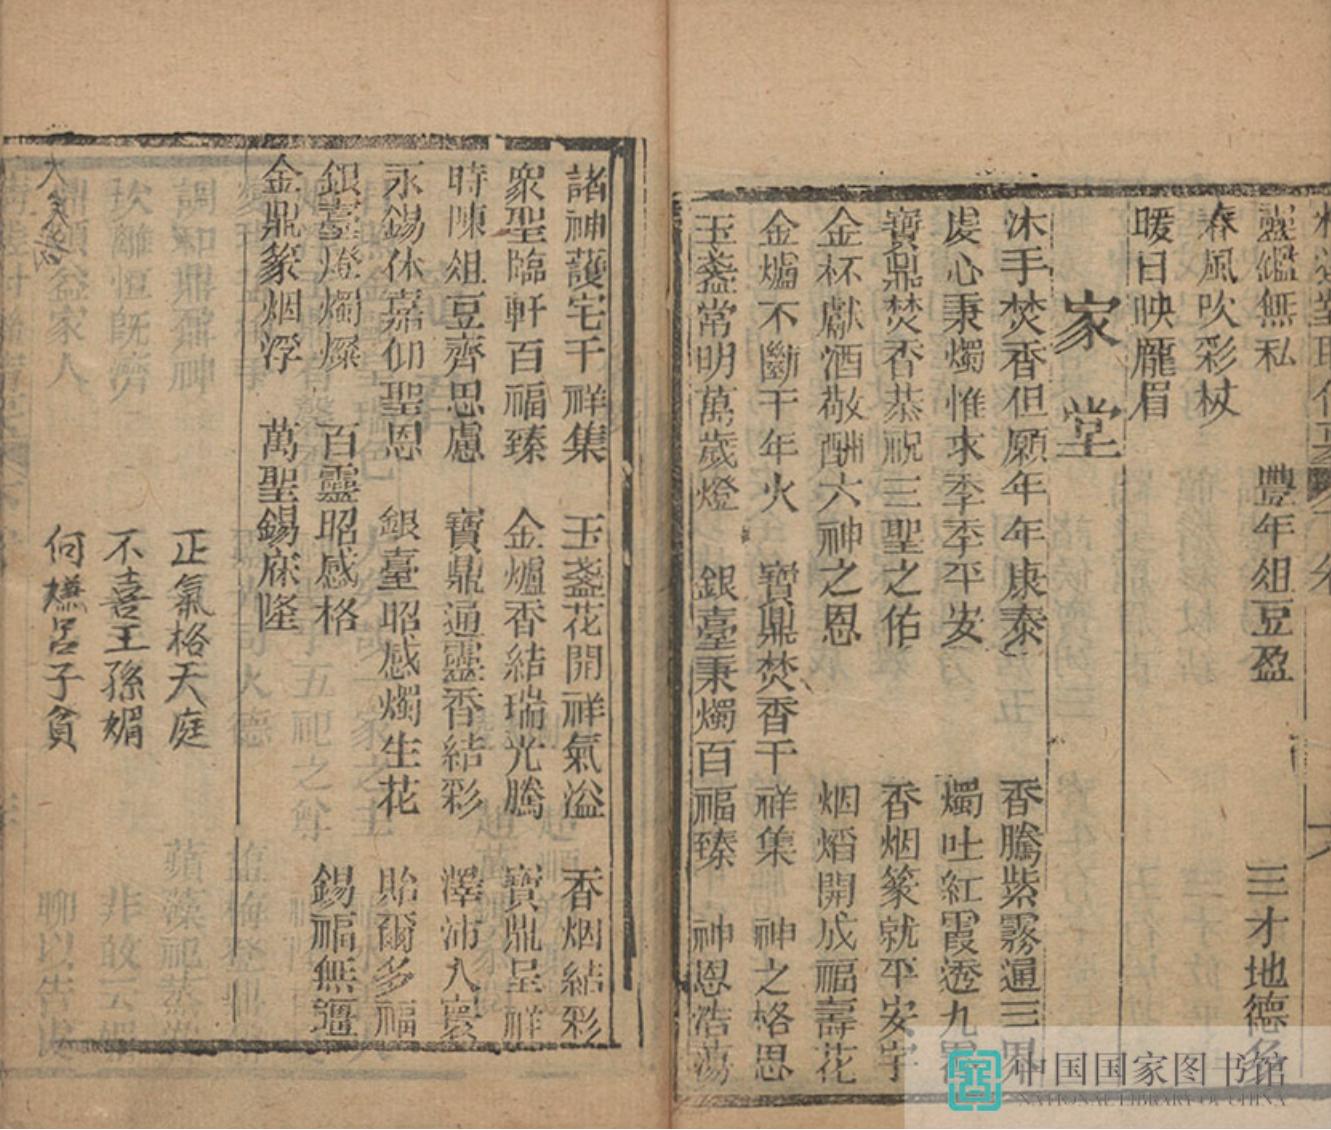 靈鑑無私　豐年俎豆盈　三才地德名
春風吹彩杖
暖日映龎眉
家堂
沐手焚香但願年年康泰　香騰紫霧通三界
虔心秉燭惟求季季平安　燭吐紅霞透九霄
寶鼎焚香恭祝三聖之佑　香烟篆就平安字
金杯獻酒敬酬六神之恩　烟熖開成福壽花
金爐不斷千年火　寶鼎焚香千祥集　神之格思
玉盞常明萬歲燈　銀臺秉燭百福臻　神恩浩蕩
諸神護宅千祥集　玉盞花開祥氣溢　香烟結彩
衆聖臨軒百福臻　金爐香結瑞光騰　寶鼎呈祥
時陳俎豆齊思慮　寶鼎通靈香結彩　澤沛人寰
永錫休嘉仰聖恩　銀臺昭感燭生花　貽爾多福
銀臺燈燭燦　百靈昭感格　錫福無疆
金鼎篆烟浮　萬聖錫庥隆
正氣格天庭
不喜王孫媚
何嫌呂子貧
中国国家图书馆
NATIONAL LIBRARY OF CHINA